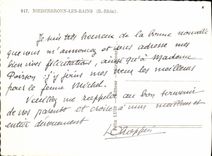 917. NIEDERBRONN-LES-BAINS (B.-Rhin)
Je suis très heureux de la bonne nouvelle
que vous m'annoncez et vous adresse mes
bien vives félicitations, ainsi qu'à Madame
Poirson j'y joins mes vœux les meilleurs
pour le jeune Michel.
Veuillez me rappeler au bon souvenir
de vos parents et croire à mes meilleurs et
entier dévouement